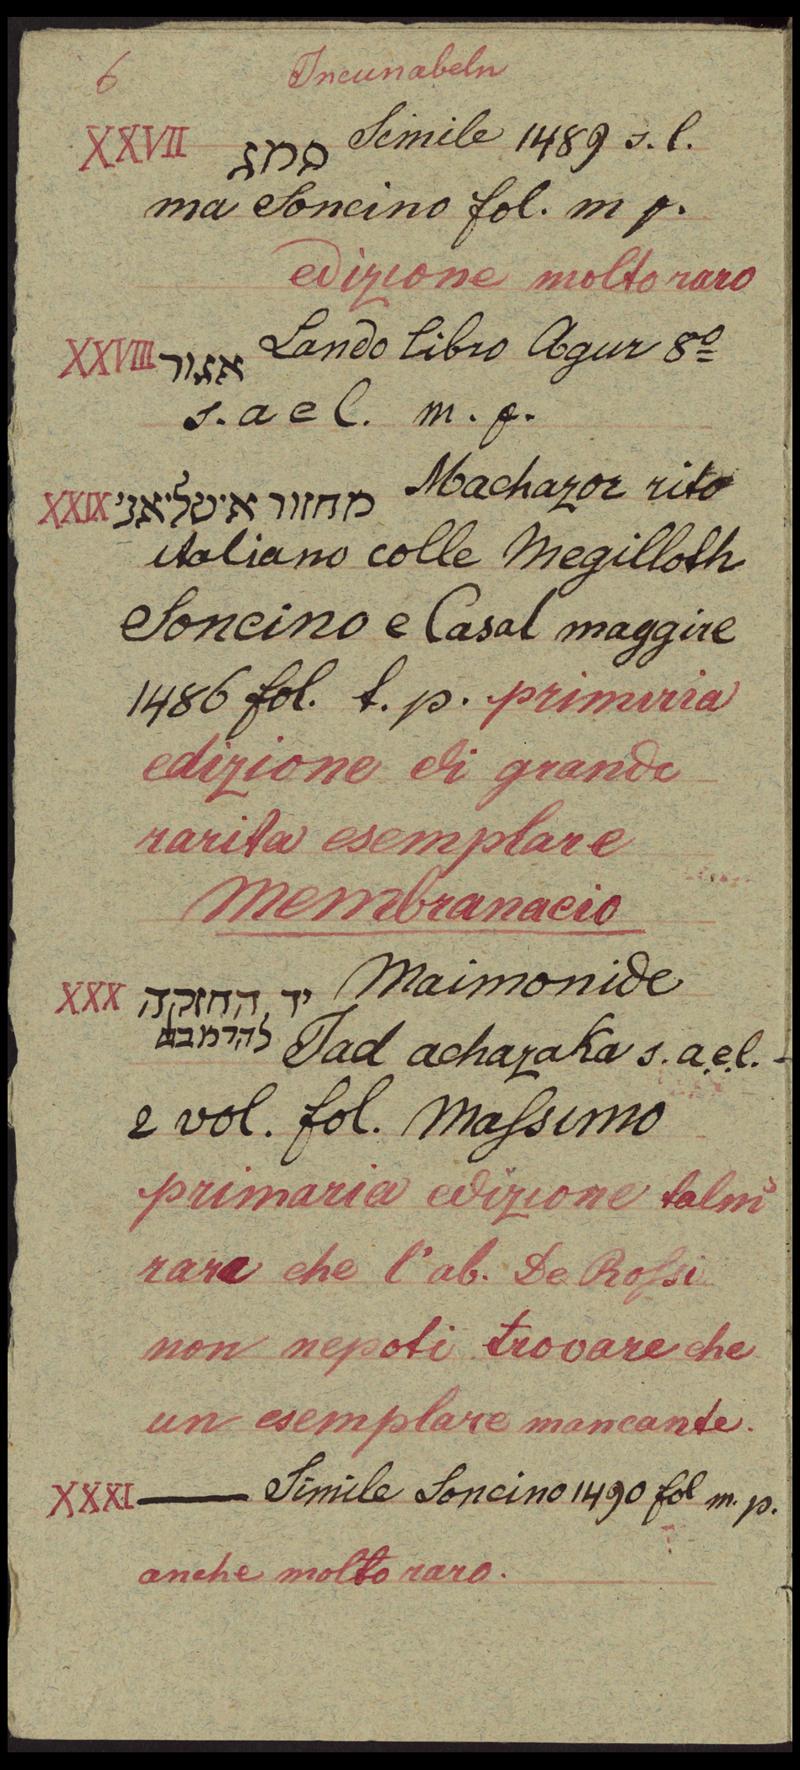 6 Incunabeln
XXVII סמג Simile 1489 s. l.
ma Soncino fol. m p.
edizione molto raro
XXVIII אגור Lando libro Agur 8º
s. a e l. m. p.
XXIX מחזור איטליאני Machazor rito
italiano colle Megilloth
Soncino e Casal maggire
1486 fol. f. p. primiria
edizione di grande
rarita esemplare
Membranacio
XXX יד החזקה Maimonide
להרמבם Jad achazaka s. a. e. l. -
2 vol. fol. Massimo
primaria edizione talm
rara che l'ab. De Rossi
non nepoti trovare che
un esemplare mancante.
XXXI — Simile Soncino 1490 fol m. p.
anche molto raro.